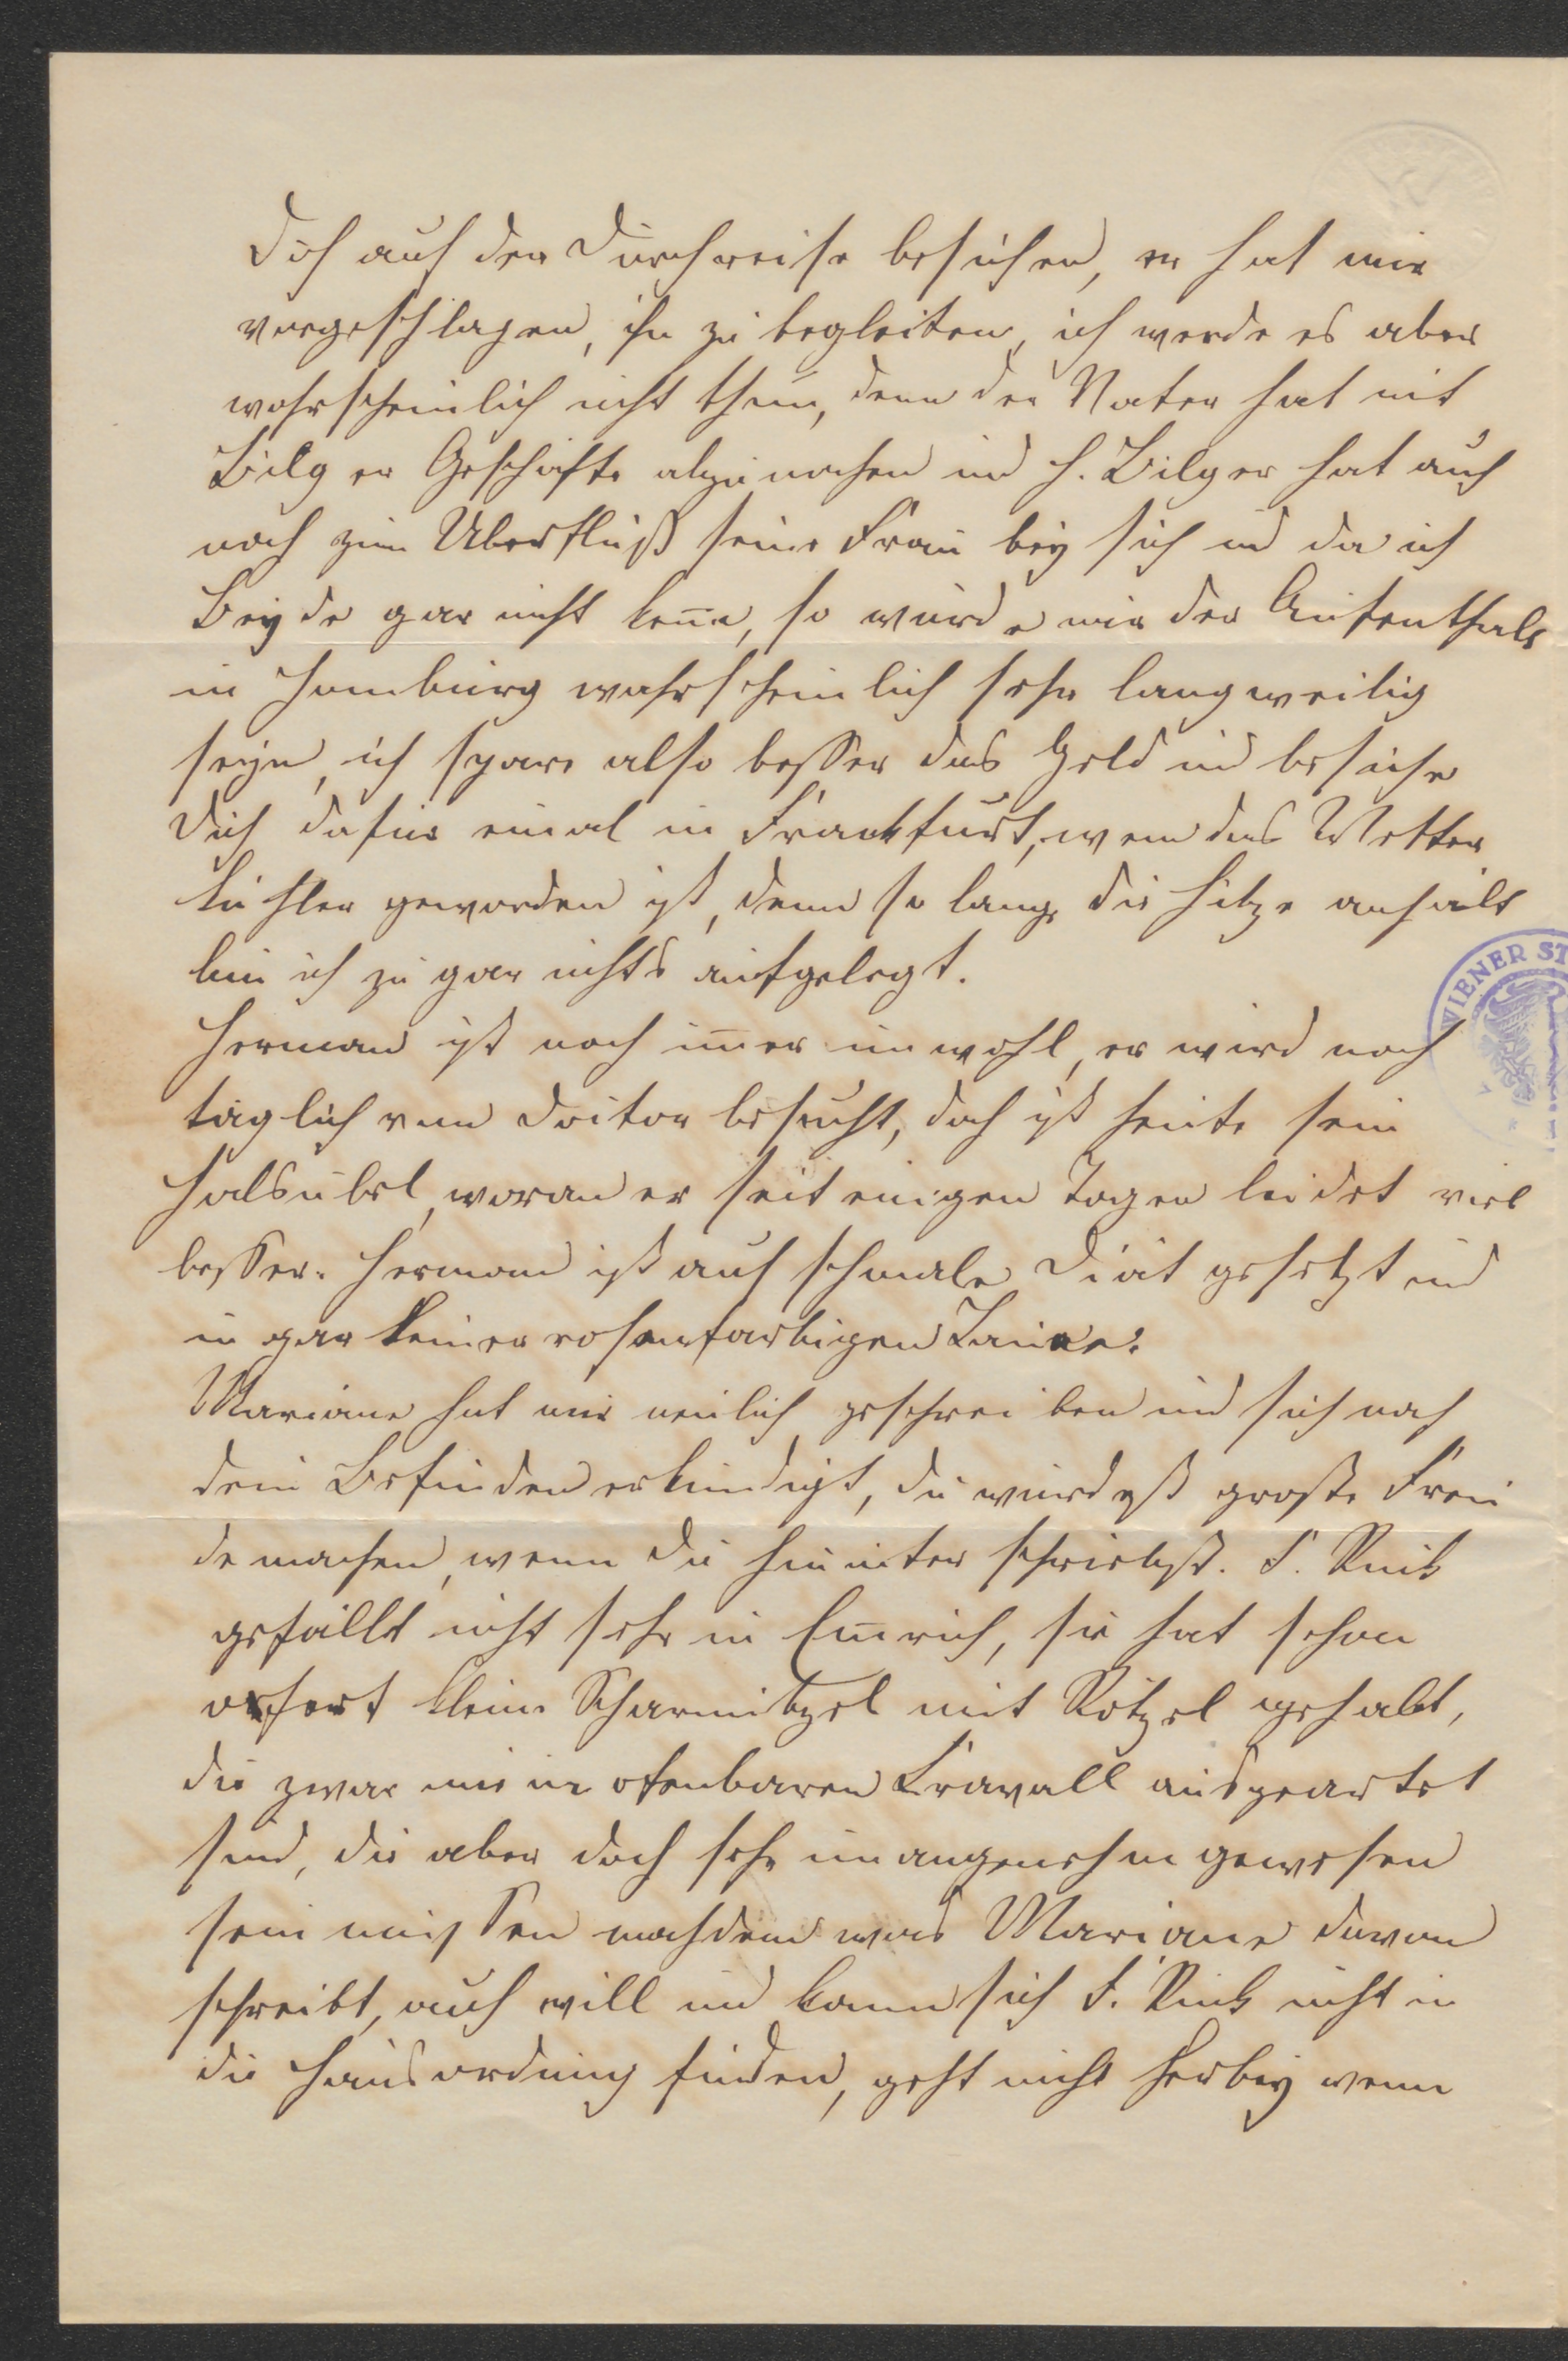 Dich auf der Durchreise besuchen, er hat mir
vorgeschlagen, ihn zu begleiten, ich werde es aber
wahrscheinlich nicht thun, denn der Vater hat mit
Bilger Geschäfte abzumachen und H. Bilger hat auch
noch zum Uberfluß seine Frau bey sich und da ich
Beyde gar nicht kenn̄e, so würde mir der Aufenthalt
in Homburg wahrscheinlich sehr langweilig
seyn, ich spare also besser das Geld und besuche
Dich dafür einmal in Frankfurt, wenn das Wetter
kühler geworden ist, denn so lang die Hitze anhält
bin ich zu gar nichts aufgelegt.
Herman ist noch im̄er unwohl, er wird noch
täglich vom Doctor besucht, doch ist heute sein
Halsübel, woran er seit einigen Tagen leidet viel
besser. Herman ist auf schmale Diät gesetzt und
in gar keiner rosenfarbigen Laune.
Mariane hat mir neulich geschrieben und sich nach
dein Befinden erkundigt, du würdest große Freu
de machen, wenn du hinunter schriebst. F. Rink
gefällt nicht sehr in Em̄rich, sie hat schon
öfter kleine Scharmützel mit Rötzel gehabt,
die zwar nie in ofenbaren Kravall ausgeartet
sind, die aber doch sehr unangenehm gewesen
sein müssen nachdem was Mariane davon
schreibt, auch will und kann sich F. Rink nicht in
die Hausordnung finden, geht nicht herbey wenn
WIENER ST